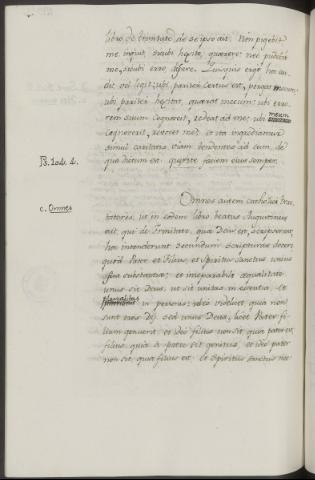 libro de trinitate de se ipso ait. Non pigebit
me inquit, sicubi hesito, quærere: nec pudebit
me, sicubi erro, discere. Quisquis ergo hæc au-
dit vel legit: ubi pariter certus est, pergat mecum:
ubi pariter hesitat, quærat mecum: ubi erro-
rem suum cognoscit, redeat ad me; ubi meum
cognoverit, revocet me. et ita ingrediamur
simul caritatis viam tendentes ad eum, de
quo dictum est. Quærite faciem eius semper.
c. Omnes
Omnes autem catholici trac-
tatores, ut in eodem libro beatus Augustinus
ait, qui de trinitate, quæ Deus est, scripserunt,
hoc intenderunt secundum scripturas docere
quod Pater et Filius, et Spiritus Sanctus unius
substantiæ; et inseparabili æqualitate
unus sit Deus, ut sit unitas in essentia, et
pluralitas in personis: ideo videlicet, quia non
sunt tres Dij, sed unus Deus, licet Pater fi-
lium genuerit, et ideo filius non sit, qui pater est,
filius, quia a patre sit genitus, et ideo pater
non sit, qui filius est: et Spiritus sanctus nec